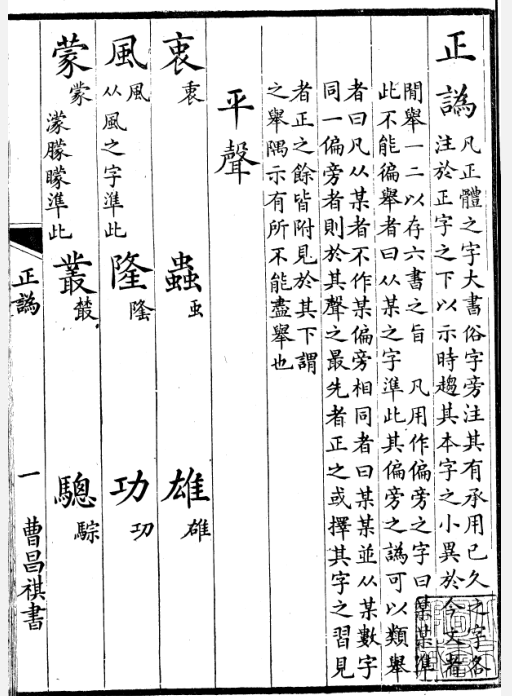 正譌
凡正體之字大書俗字旁注其有承用已久之字各
注於正字之下以示時趨其本字之小異於今文者
閒舉一二以存六書之旨 凡用作偏旁之字曰某某準
此不能徧舉者曰从某之字準此其偏旁之譌可以類舉
者曰凡从某者不作某偏旁相同者曰某某並从某數字
同一偏旁者則於其聲之最先者正之或擇其字之習見
者正之餘皆附見於其下謂
之舉隅示有所不能盡舉也
平聲
衷 衷 蟲 虫 雄
風 風 从風之字準此 隆 功
蒙 蒙 濛朦矇準此 叢 驄 騌
正譌 一 曹昌祺書